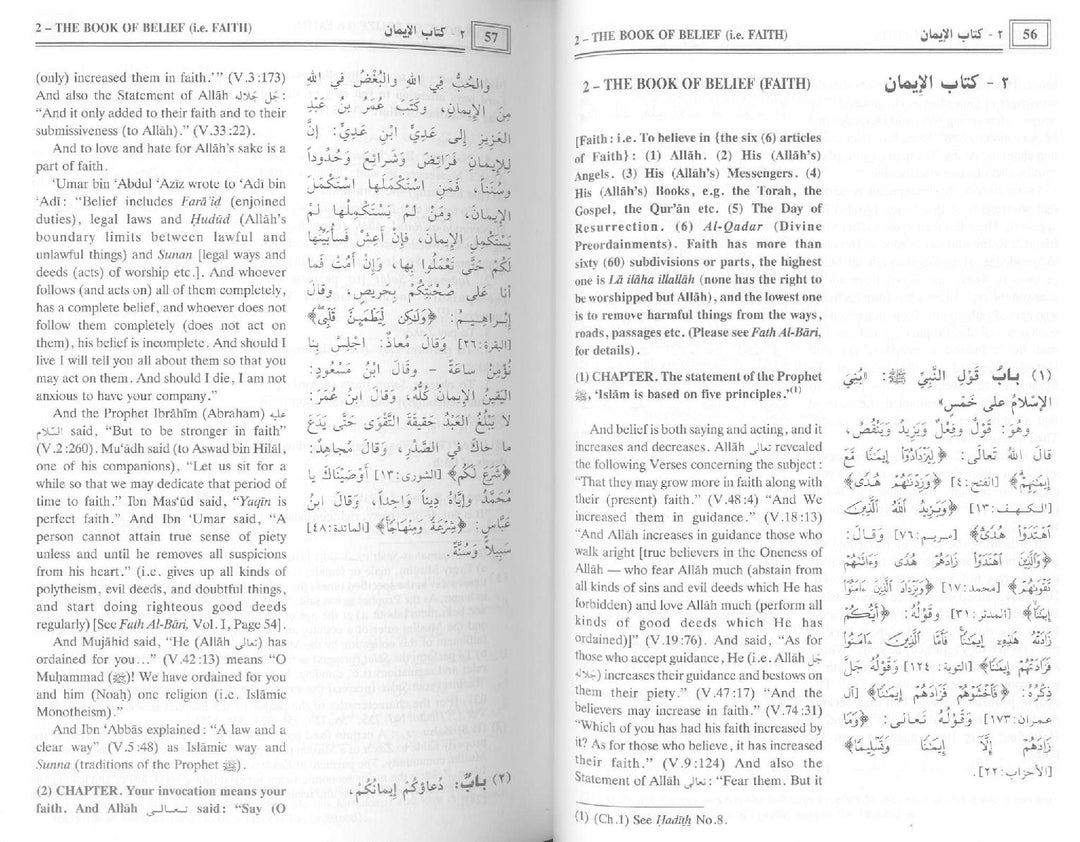 2 – THE BOOK OF BELIEF (i.e. FAITH) ٢ - كتاب الإيمان 56
2 – THE BOOK OF BELIEF (FAITH) ٢ - كتاب الإيمان
[Faith : i.e. To believe in {the six (6) articles
of Faith} : (1) Allāh. (2) His (Allāh's)
Angels. (3) His (Allāh's) Messengers. (4)
His (Allāh's) Books, e.g. the Torah, the
Gospel, the Qur'ān etc. (5) The Day of
Resurrection. (6) Al-Qadar (Divine
Preordainments). Faith has more than
sixty (60) subdivisions or parts, the highest
one is Lā ilāha illallāh (none has the right to
be worshipped but Allāh), and the lowest one
is to remove harmful things from the ways,
roads, passages etc. (Please see Fath Al-Bāri,
for details).
(1) CHAPTER. The statement of the Prophet
ﷺ, 'Islām is based on five principles.'(1)
And belief is both saying and acting, and it
increases and decreases. Allāh تعالى revealed
the following Verses concerning the subject :
"That they may grow more in faith along with
their (present) faith." (V.48 :4) "And We
increased them in guidance." (V.18 :13)
"And Allāh increases in guidance those who
walk aright [true believers in the Oneness of
Allāh — who fear Allāh much (abstain from
all kinds of sins and evil deeds which He has
forbidden) and love Allāh much (perform all
kinds of good deeds which He has
ordained)]" (V.19 :76). And said, "As for
those who accept guidance, He (i.e. Allāh جل
جلاله) increases their guidance and bestows on
them their piety." (V.47 :17) "And the
believers may increase in faith." (V.74 :31)
"Which of you has had his faith increased by
it? As for those who believe, it has increased
their faith." (V.9 :124) And also the
Statement of Allāh تعالى : "Fear them. But it
(١) بابُ قَوْلِ النَّبِيِّ ﷺ: «بُنِيَ
الإِسْلامُ على خَمْسٍ»
وهُوَ: قَوْلٌ وفِعْلٌ ويَزِيدُ ويَنْقُصُ،
قالَ اللهُ تَعالى: ﴿لِيَزْدَادُوٓا۟ إِيمَـٰنًا مَّعَ
إِيمَـٰنِهِمْ﴾ [الفتح:٤] ﴿وَزِدْنَـٰهُمْ هُدًى﴾
[الكهف:١٣] ﴿وَيَزِيدُ ٱللَّهُ ٱلَّذِينَ
ٱهْتَدَوْا۟ هُدًى﴾ [مريم:٧٦] وقَالَ:
﴿وَٱلَّذِينَ ٱهْتَدَوْا۟ زَادَهُمْ هُدًى وَءَاتَىٰهُمْ
تَقْوَىٰهُمْ﴾ [محمد:١٧] ﴿وَيَزْدَادَ ٱلَّذِينَ ءَامَنُوٓا۟
إِيمَـٰنًا﴾ [المدثر:٣١] وقَوْلُهُ: ﴿أَيُّكُمْ
زَادَتْهُ هَـٰذِهِۦٓ إِيمَـٰنًا فَأَمَّا ٱلَّذِينَ ءَامَنُوا۟
فَزَادَتْهُمْ إِيمَـٰنًا﴾ [التوبة: ١٢٤] وقَوْلُهُ جَلَّ
ذِكْرُهُ: ﴿فَٱخْشَوْهُمْ فَزَادَهُمْ إِيمَـٰنًا﴾ [آل
عمران:١٧٣] وقَوْلُهُ تَعالى: ﴿وَمَا
زَادَهُمْ إِلَّآ إِيمَـٰنًا وَتَسْلِيمًا﴾
[الأحزاب:٢٢].
(1) (Ch.1) See Hadith No.8.
2 – THE BOOK OF BELIEF (i.e. FAITH) ٢ - كتاب الإيمان 57
(only) increased them in faith.'" (V.3 :173)
And also the Statement of Allāh جل جلاله :
"And it only added to their faith and to their
submissiveness (to Allāh)." (V.33 :22).
And to love and hate for Allāh's sake is a
part of faith.
'Umar bin 'Abdul 'Azīz wrote to 'Adī bin
'Adī : "Belief includes Farā'iḍ (enjoined
duties), legal laws and Ḥudūd (Allāh's
boundary limits between lawful and
unlawful things) and Sunan [legal ways and
deeds (acts) of worship etc.]. And whoever
follows (and acts on) all of them completely,
has a complete belief, and whoever does not
follow them completely (does not act on
them), his belief is incomplete. And should I
live I will tell you all about them so that you
may act on them. And should I die, I am not
anxious to have your company."
And the Prophet Ibrāhīm (Abraham) عليه
السلام said, "But to be stronger in faith"
(V.2 :260). Mu'ādh said (to Aswad bin Hilāl,
one of his companions), "Let us sit for a
while so that we may dedicate that period of
time to faith." Ibn Mas'ūd said, "Yaqīn is
perfect faith." And Ibn 'Umar said, "A
person cannot attain true sense of piety
unless and until he removes all suspicions
from his heart." (i.e. gives up all kinds of
polytheism, evil deeds, and doubtful things,
and start doing righteous good deeds
regularly) [See Fath Al-Bāri, Vol. I, Page 54].
And Mujāhid said, "He (Allāh تعالى) has
ordained for you…" (V.42 :13) means "O
Muḥammad (ﷺ)! We have ordained for you
and him (Noaḥ) one religion (i.e. Islāmic
Monotheism)."
And Ibn 'Abbās explained : "A law and a
clear way" (V.5 :48) as Islāmic way and
Sunna (traditions of the Prophet ﷺ).
(2) CHAPTER. Your invocation means your
faith. And Allāh تعالى said : "Say (O
والحُبُّ في اللهِ والبُغْضُ في اللهِ
مِنَ الإيمَانِ، وكَتَبَ عُمَرُ بنُ عَبْدِ
العَزِيزِ إلى عَدِيِّ ابْنِ عَدِيٍّ: إنَّ
لِلإِيمَانِ فَرَائِضَ وشَرَائِعَ وحُدُوداً
وسُنَناً، فَمَنِ اسْتَكْمَلَها اسْتَكْمَلَ
الإيمَانَ، ومَنْ لَمْ يَسْتَكْمِلْها لَمْ
يَسْتكمِلِ الإيمَانَ، فإِنْ أَعِشْ فَسأُبَيِّنُها
لَكُمْ حَتَّى تَعْمَلُوا بِها، وَإِنْ أَمُتْ فَما
أنا على صُحْبَتِكُمْ بحَرِيصٍ، وقالَ
إبْرَاهِيمُ: ﴿وَلَٰكِن لِّيَطْمَئِنَّ قَلْبِى﴾
[البقرة:٢٦٠] وَقَالَ مُعاذٌ: اجْلِسْ بِنا
نُؤْمِنْ ساعَةً – وقالَ ابنُ مَسْعُودٍ:
اليَقِينُ الإيمَانُ كُلُّهُ، وَقَالَ ابْنُ عُمَرَ:
لا يَبْلُغُ العَبْدُ حَقِيقَةَ التَّقْوَى حَتَّى يَدَعَ
ما حاكَ في الصَّدْرِ، وقَالَ مُجاهِدٌ:
﴿شَرَعَ لَكُم﴾ [الشورى:١٣] أوْصَيْناكَ يا
مُحَمَّدُ وإيَّاهُ دِيناً واحِداً، وقَالَ ابنُ
عَبَّاسٍ: ﴿شِرْعَةً وَمِنْهَاجًا﴾ [المائدة:٤٨]
سَبِيلاً وَسُنَّةً.
(٢) بابٌ: دُعَاؤُكُمْ إيمَانُكُمْ،